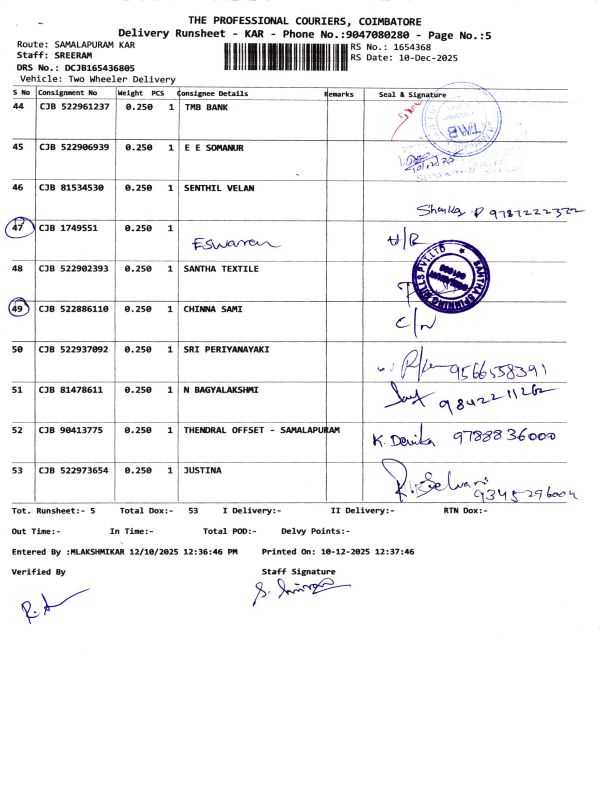 THE PROFESSIONAL COURIERS, COIMBATORE
Delivery Runsheet - KAR - Phone No.:9047080280 - Page No.:5
Route: SAMALAPURAM KAR RS No.: 1654368
Staff: SREERAM RS Date: 10-Dec-2025
DRS No.: DCJB165436805
Vehicle: Two Wheeler Delivery
S No Consignment No Weight PCS Consignee Details Remarks Seal & Signature
44 CJB 522961237 0.250 1 TMB BANK
TMB
45 CJB 522906939 0.250 1 E E SOMANUR
10/12/25
46 CJB 81534530 0.250 1 SENTHIL VELAN
9787222322
47 CJB 1749551 0.250 1
Eswaran H/R
48 CJB 522902393 0.250 1 SANTHA TEXTILE
SANTHA SPINNING MILLS PVT.LTD
49 CJB 522886110 0.250 1 CHINNA SAMI
C/N
50 CJB 522937092 0.250 1 SRI PERIYANAYAKI
9566558391
51 CJB 81478611 0.250 1 N BAGYALAKSHMI
9842211262
52 CJB 90413775 0.250 1 THENDRAL OFFSET - SAMALAPURAM
K. Devika 9788836000
53 CJB 522973654 0.250 1 JUSTINA
Selvani
Tot. Runsheet:- 5 Total Dox:- 53 I Delivery:- II Delivery:- RTN Dox:-
Out Time:- In Time:- Total POD:- Delvy Points:-
Entered By :MLAKSHMIKAR 12/10/2025 12:36:46 PM Printed On: 10-12-2025 12:37:46
Verified By Staff Signature